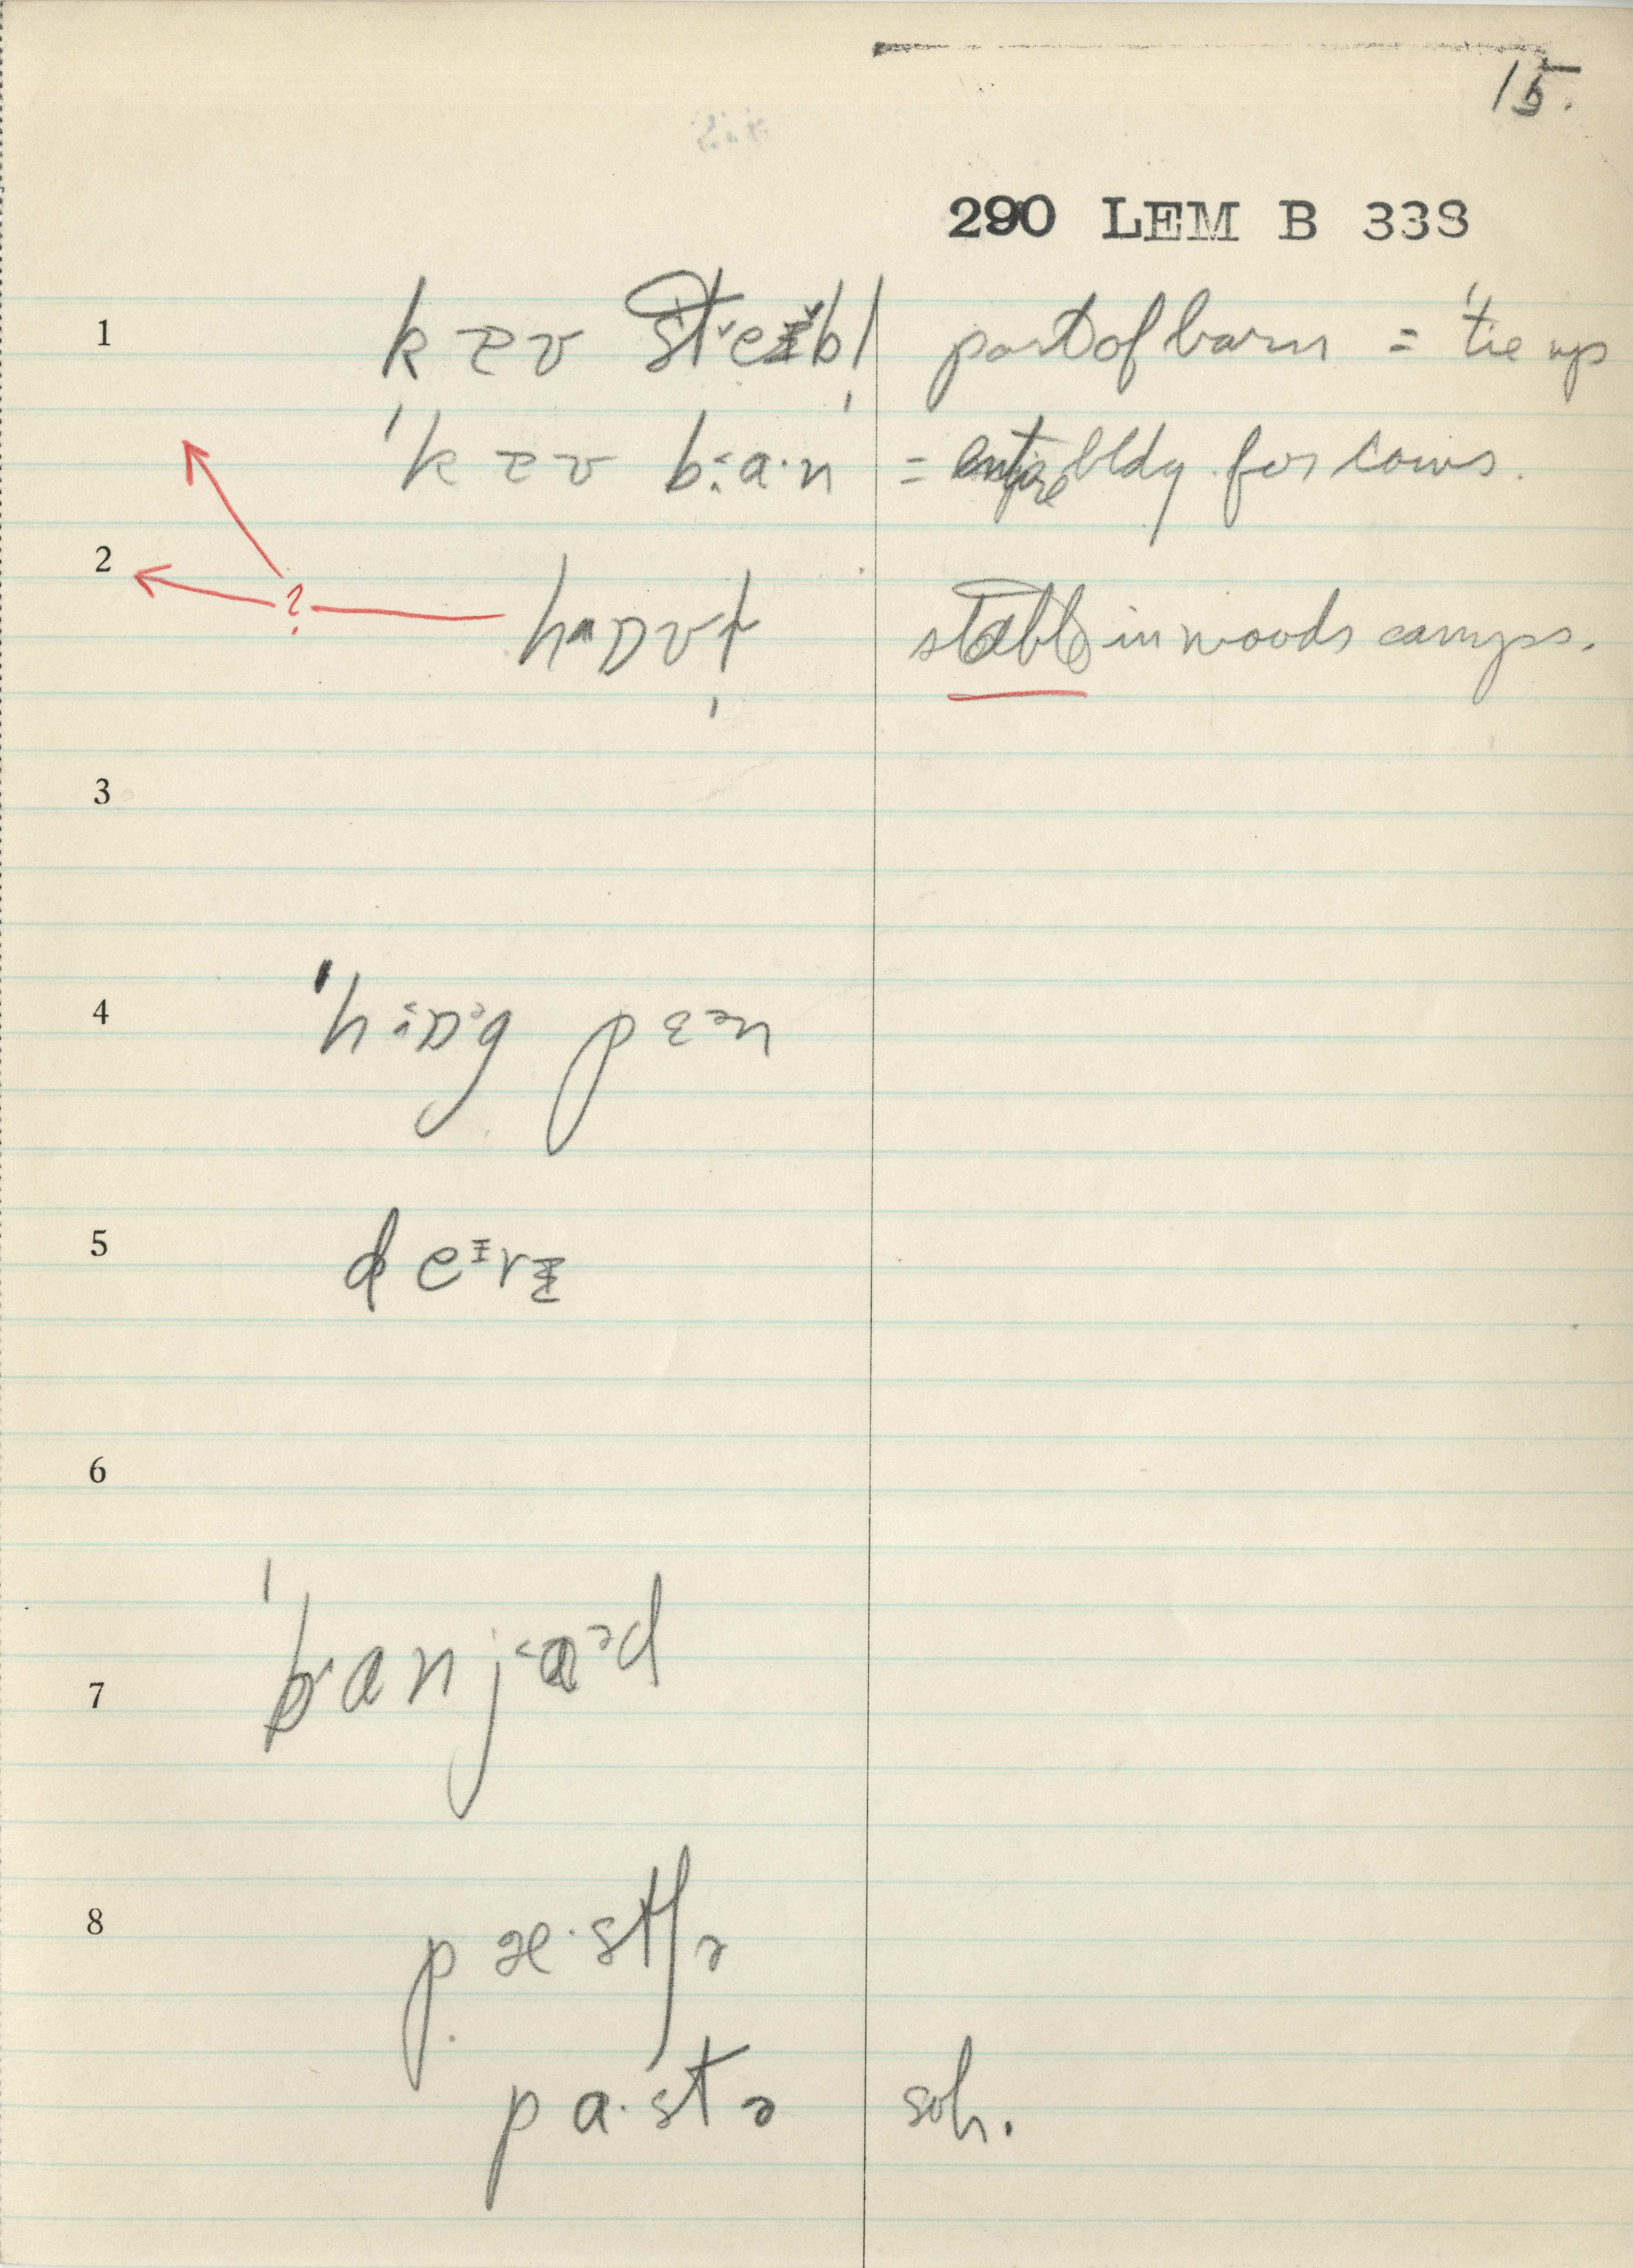 15.
290 LEM B 338
1 kɐʊ stˇeɪbḷ part of barn = ˈtie up
ˈkɐʊ b:a·n = entire bldg. for cows.
2 ? hɒvḷ stable in woods camps.
3
4 ˈhɒg pɛən
5 deɪrɪ
6
7 ˈbanjɑəd
8 pæ·stʃə
pa·stə soh.